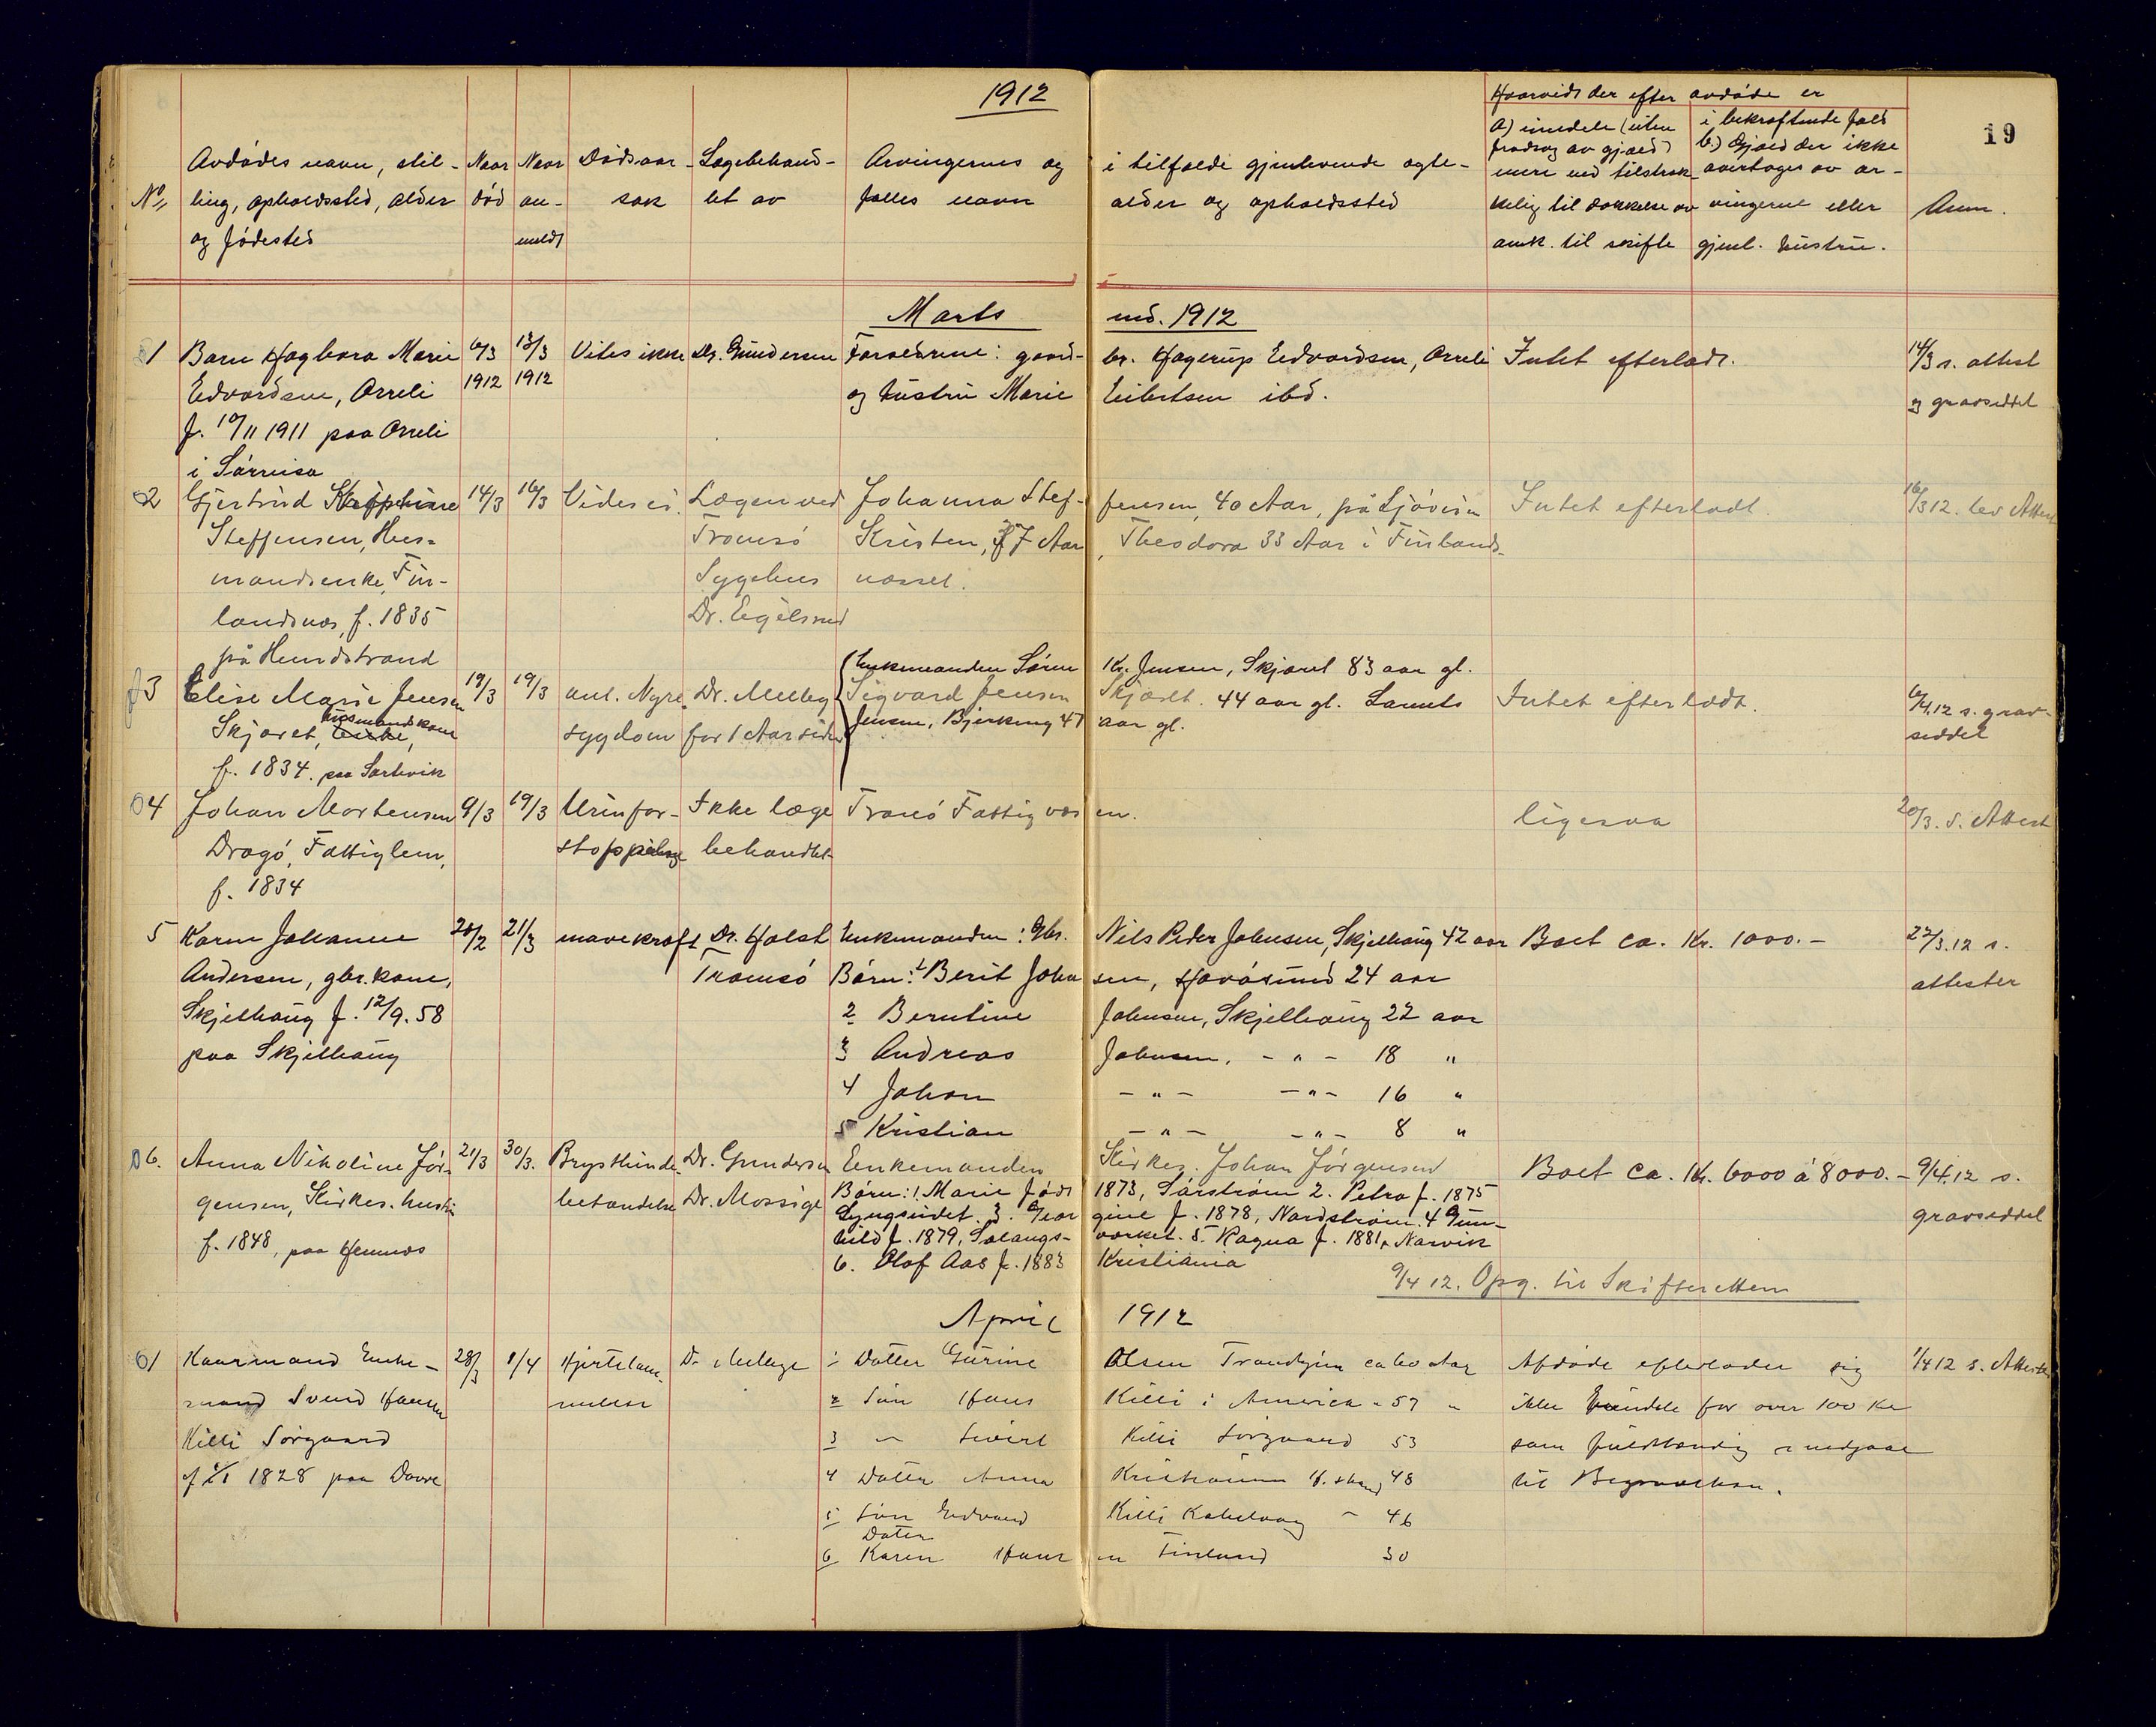 1912
19
Hvorvidt der efter avdøde er
No
Avdødes navn, stil-
ling, opholdssted, alder
og fødested
Naar
død
Naar
an-
meldt
Dødsaar-
sak
Lægebehand-
let av
Arvingernes og
fælles navn
i tilfælde gjenlevende ægte-
alder og opholdssted
a) midele (uten
fradrag av gjæld)
mere end tilstræk-
kelig til dækkelse av
omk. til skifte
i bekræftende fald
b) Gjæld der ikke
overtages av ar-
vingerne eller
gjenl. hustru.
Anm.
Marts md. 1912
1 Barn Hagbora Marie 6/3 13/3 Vites ikke Dr. Gundersen Forældrene: gaard- br. Hagerup Edvardsen, Orreli Intet efterladt. 14/3 s. attest
Edvardsen, Orreli 1912 1912 og hustru Marie Eilertsen ibd. og gravseddel
f. 10/11 1911 paa Orreli
i Sørreisa
2 Gjertrud 14/3 16/3 Vides ei. Lægen ved Johanna Stef- fensen, 40 Aar, på Sjøvein Intet efterladt. 16/3 12. lev Attest
Steffensen, Hus- Tromsø Kristen, 37 Aar, Theodora 33 Aar i Finlands-
mandsenke, Fin- Sygehus næsset.
landsnæs, f. 1835 Dr. Egelsrud
på Hundstrand
3 Elise Marie Jensen 19/3 19/3 ant. Nyre- Dr. Melbye Enkemanden Søren Kr. Jensen, Skjæret 83 aar gl.
Skjæret, husmandskone sygdom for 1 Aar siden Sigvard Jensen Skjæret. 44 aar gl. Laurits Intet efterladt. 6/4.12 s. grav-
f. 1834. paa Sørkvik Jensen, Bjerkeng 47 aar gl. seddel
4 Johan Mortensen 9/3 19/3 Urinfor- Ikke læge Tranø Fattigvæsen. ligesaa 20/3. s. Attest
Dragø, Fattiglem, stoppelse behandlet
f. 1834
5 Karen Johanne 20/2 21/3 mavekræft Dr. Holst Enkemanden: Gbr. Nils Peder Johnsen, Skjelhaug 42 aar Boet ca. Kr. 1000.- 22/3.12 s.
Andersen, gbr. kone, Tromsø Børn: 1 Berit Johnsen, Havøsund 24 aar attester
Skjelhaug f. 12/9. 58 2 Berntine Johnsen, Skjelhaug 22 aar
paa Skjelhaug 3 Andreas Johnsen, - " - 18 "
4 Johan - " - - " - 16 "
5 Kristian - " - - " - 8 "
6. Anna Nikoline Jør- 21/3 30/3. Brysthinde- Dr. Gundersen Enkemanden Kirkes. Johan Jørgensen Boet ca. Kr. 6000 à 8000.- 9/4.12 s.
gensen, Kirkes. hustru betændelse Dr. Mossige Børn: 1. Marie født 1873, Sørstrøm 2. Petra f. 1875 gravseddel
f. 1848, paa Hemnes Lyngseidet. 3. Georgine f. 1878, Nordstrøm. 4 Gun-
hild f. 1879, Salangs- verket. 5. Ragna f. 1881, Narvik
6. Olaf Aas f. 1883 Kristiania
9/4 12. Opg. til Skifteretten
April 1912
1 Kaarmand Enke- 28/3 1/4 Hjertelam- Dr. Melbye 1 Datter Gurine Olsen Trondhjem ca 60 Aar Afdøde efterlader sig 1/4 12 s. Attester
mand Svend Hansen melse 2 Søn Hans Killi i America - 57 " ikke Eiendele for over 100 Kr
Killi Sørgaard 3 " Sivert Killi Sørgaard 53 som fuldstændig medgaar
f 1828 paa Dovre 4 Datter Anna Kristiansen 48 til Begravelsen.
5 Søn Edvard Killi Kabelvaag - 46
6 Datter Karen Hansen Finland 30